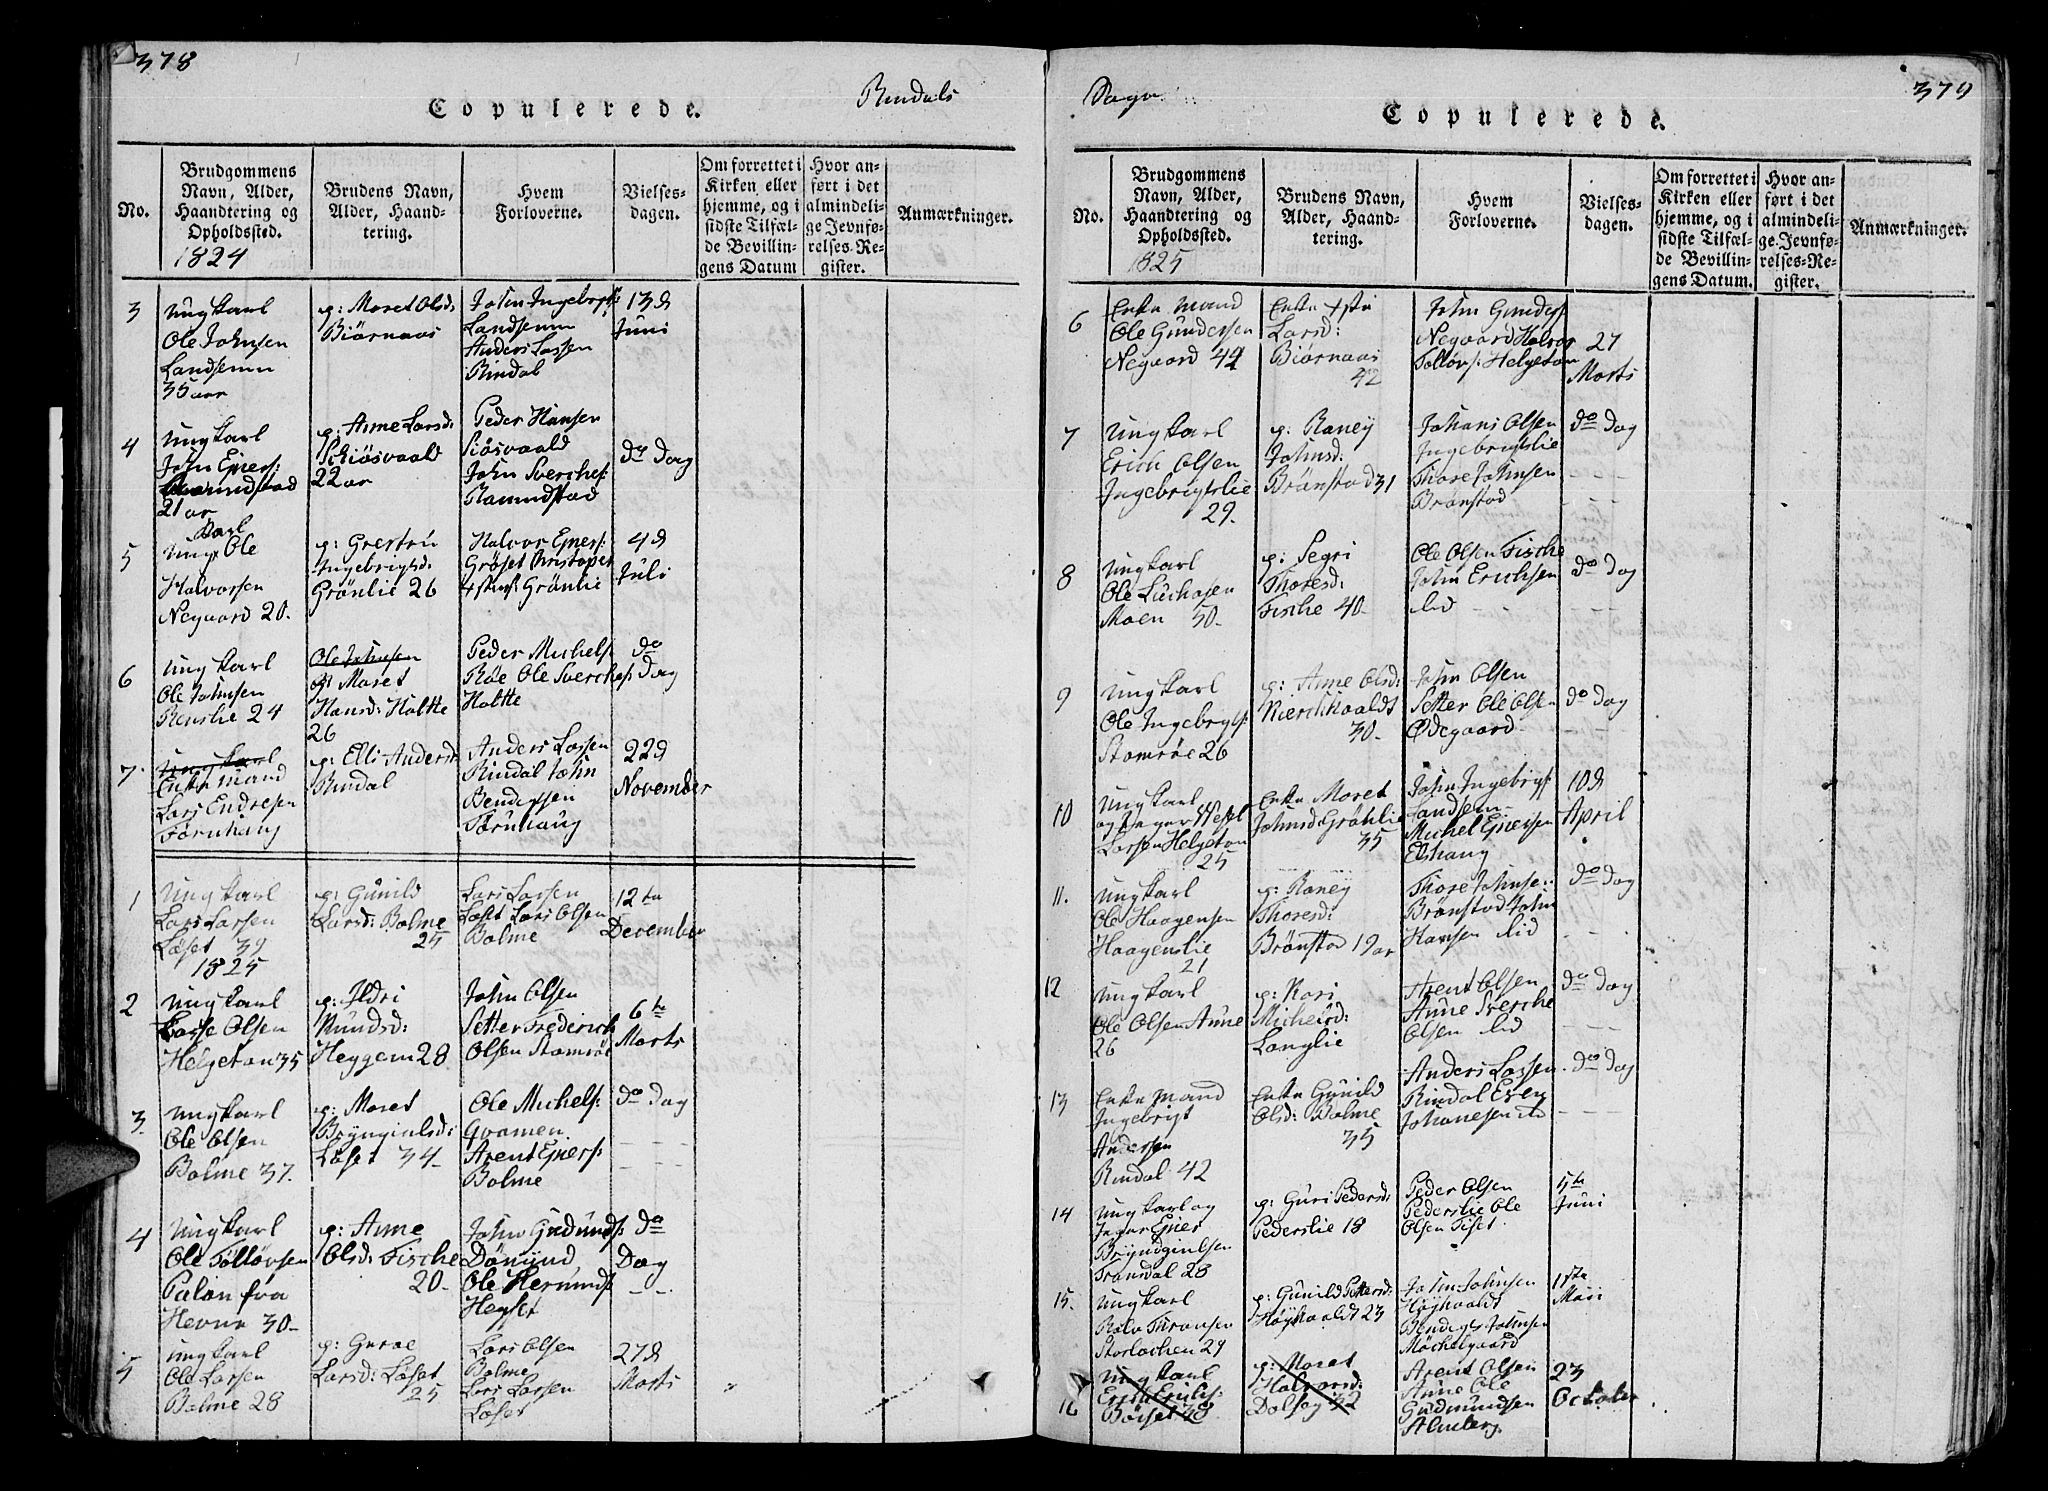 378
Rindals
Copulerede.
No.
Brudgommens
Navn, Alder,
Haandtering og
Opholdssted.
1824
Brudens Navn,
Alder, Haand-
tering.
Hvem
Forloverne.
Vielses-
dagen.
Om forrettet i
Kirken eller
hjemme, og i
sidste Tilfæl-
de Bevillin-
gens Datum
Hvor an-
ført i det
almindeli-
ge Jevnfø-
relses-Re-
gister.
Anmærkninger.
3
Ungkarl
Ole Johnsen
Landsemn
35 aar
p: Maret Olsd:
Biørnaas
John Ingebrigts:
Landsemn
Anders Larsen
Rindal
13d
Juni
4
Ungkarl
John Eners:
21 ar
p: Anne Larsd:
22 ar
Peder Hansen
John Sverches:
do Dag
5
Karl
Ung Ole
Halvorsen
Negaard 20.
Ingebrigtsd:
Grønlie 26
Halvor Eners:
Grøset Christopher
Grønlie
4d
Juli
6
Ungkarl
Ole Johnsen
Renslie 24
Ole Johnsen
p: Maret
Hansd: Holtte
26
Peder Michels:
Røe Ole Sverches:
Holtte
do
Dag
7.
Ungkarl
Enke Mand
Lars Endresen
Tørnhaug
p: Elli Andersd:
Rindal
Anders Larsen
Rindal John
Bendixsen
Tørnhaug
22d
November
1
Ungkarl
Lars Larsen
Løset 39
1825
p: Gunild
Larsd: Bolme
25
Lars Larsen
Løset Lars Olsen
Bolme
12te
December
2
Ungkarl
Lasse Olsen
Helgeton 35
p: Ildri
Heggem 28
John Olsen
Setter Frederich
Olsen Stomrøe
6te
Marts
3.
Ungkarl
Ole Olsen
Bolme 37.
p: Maret
Løset 34
Ole Michels:
Qvamen.
Arent Eners:
Bolme
do Dag
4
Ungkarl
Ole Tølløvsen
fra
Hevne 30
p: Anne
Olsd: Fische
20
John Gudmunds:
Ole
do
Dag
5
Ungkarl
Ole Larsen
Bolme 28
p: Guroe
Larsd: Løset
25
Lars Olsen
Bolme
Lars Larsen
Løset
27d
Marts
379
Sogn
Copulerede.
No.
Brudgommens
Navn, Alder,
Haandtering og
Opholdssted.
1825
Brudens Navn,
Alder, Haand-
tering.
Hvem
Forloverne.
Vielses-
dagen.
Om forrettet i
Kirken eller
hjemme, og i
sidste Tilfæl-
de Bevillin-
gens Datum.
Hvor an-
ført i det
almindeli-
ge Jevnfø-
relses-Re-
gister.
Anmærkninger.
6
Enke Mand
Ole Gundersen
Negaard 44
Enke
Larsd:
Biørnaas
42
John Gunders:
Negaard Halvor
Tølløvs: Helgeton
27
Marts
7
Ungkarl
Erich Olsen
Ingebrigtslie
29.
p: Raney
Johnsd:
Brønstad 31
Johans Olsen
Ingebrigtslie
Thore Johnsen
Brønstad
do Dag
8
Ungkarl
Ole
Moen 50
p: Segri
Thoresd:
Fische 40
Ole Olsen Fische
John Erichsen
do Dag
9
Ungkarl
Ole Ingebrigts:
Stomrøe 26
p: Anne Olsd:
30
John Olsen
Setter Ole Olsen
Ødegaard
do Dag
10
Ungkarl
Larsen Helgeton
25
Enke Maret
Johnsd: Grønlie
35
John Ingebrigts:
Landsem
Michel Enersen
Elshaug
10d
April
11.
Ungkarl
Ole Haagensen
Haagenslie
21
p: Raney
Thoresd:
Brønstad 19 ar
Thore Johnse:
Brønstad John
Hansen
do Dag
12
Ungkarl
Ole Olsen Aune
26
p: Kari
Langlie
Arent Olsen
Aune Sverche
Olsen
do Dag
13
Enke Mand
Ingebrigt
Andersen
Rindal 42
Enke Gunild
Olsd: Bolme
35
Anders Larsen
Rindal Even
Johanesen
do Dag
14
Ungkarl og
Jeger Ener
Tröndal 28
p: Guri Pedersd:
Pederslie 18
Peder Olsen
Pederslie Ole
Olsen
5te
Juni
15.
Ungkarl
Storlachen 29
p: Gunild Pettersd:
23
John Johnsen
Bendigt Johnsen
1ste
Maii
16
Ungkarl
Børset 48
p: Maret
Halvorsd:
Dolseg 32
Arent Olsen
Aune Ole
Gudmundsen
Almberg.
23
October